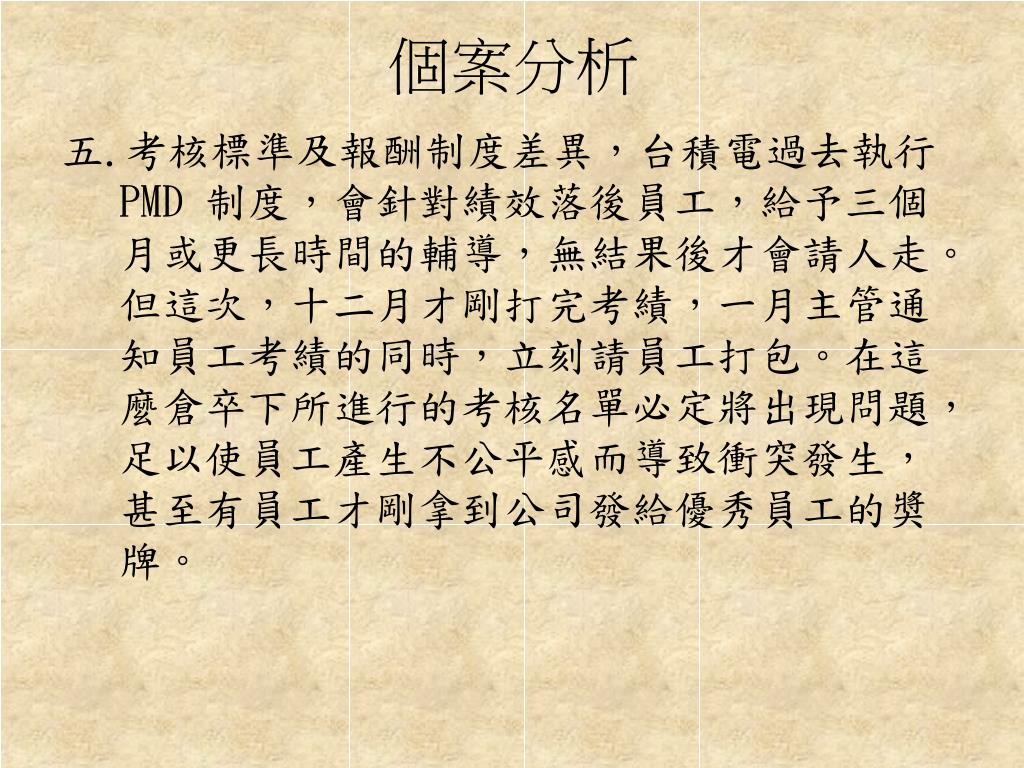 個案分析
五.考核標準及報酬制度差異，台積電過去執行
PMD 制度，會針對績效落後員工，給予三個
月或更長時間的輔導，無結果後才會請人走。
但這次，十二月才剛打完考績，一月主管通
知員工考績的同時，立刻請員工打包。在這
麼倉卒下所進行的考核名單必定將出現問題，
足以使員工產生不公平感而導致衝突發生，
甚至有員工才剛拿到公司發給優秀員工的獎
牌。